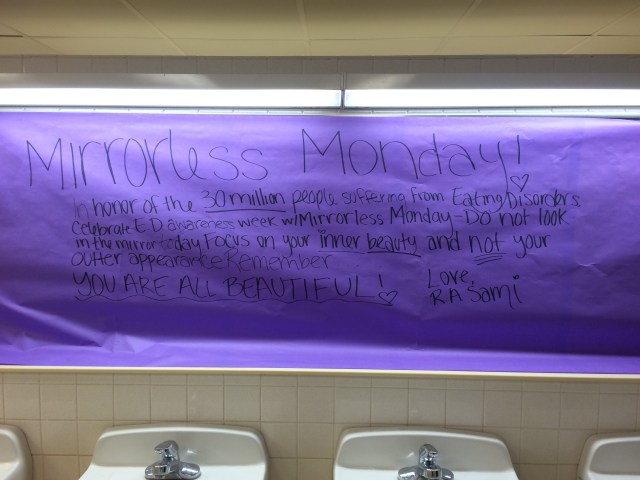 Mirrorless Monday!
In honor of the 30 million people suffering from Eating Disorders
Celebrate ED awareness week w/ Mirrorless Monday - Do not look
in the mirror today Focus on your inner beauty and not your
outter appearance Remember
YOU ARE ALL BEAUTIFUL!
Love,
RA Sami